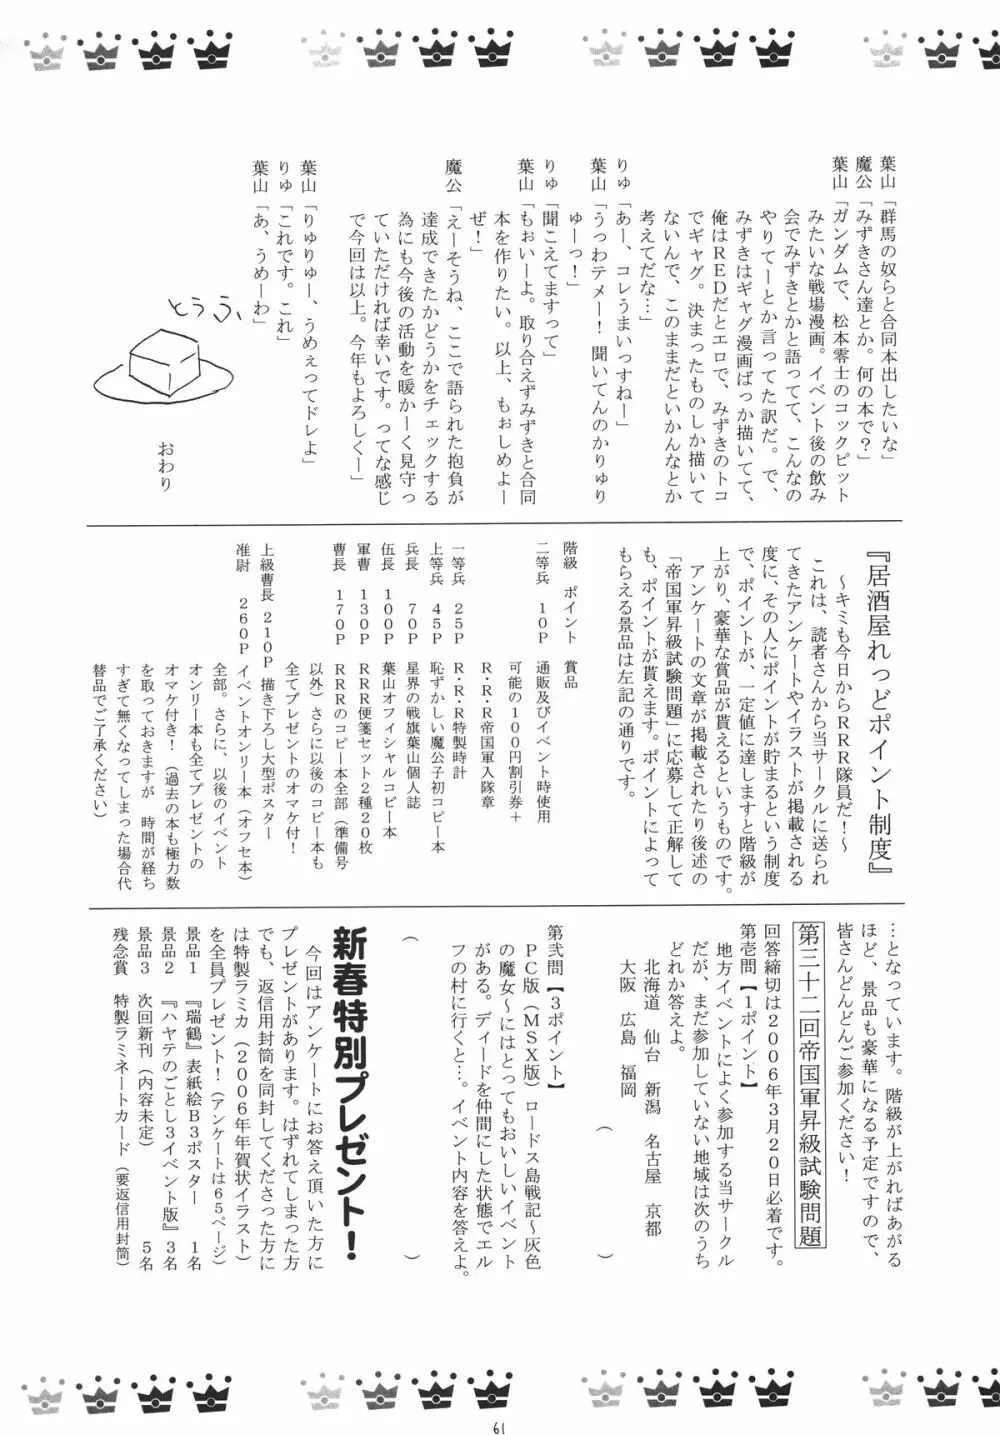 葉山「群馬の奴らと合同本出したいな」
魔公「みずきさん達とか。何の本で？」
葉山「ガンダムで、松本零士のコックピット
みたいな戦場漫画。イベント後の飲み
会でみずきとかと語ってて、こんなの
やりてーとか言ってた訳だ。で、
みずきはギャグ漫画ばっか描いてて、
俺はＲＥＤだとエロで、みずきのトコ
でギャグ。決まったものしか描いて
ないんで、このままだといかんなとか
考えてだな…」
りゅ「あー、コレうまいっすねー」
葉山「うっわテメー！聞いてんのかりゅり
ゅーっ！」
りゅ「聞こえてますって」
葉山「もぉいーよ。取り合えずみずきと合同
本を作りたい。以上、もぉしめよー
ぜ！」
魔公「えーそうね、ここで語られた抱負が
達成できたかどうかをチェックする
為にも今後の活動を暖かーく見守っ
ていただければ幸いです。ってな感じ
で今回は以上。今年もよろしくー」
葉山「りゅりゅー、うめぇってドレよ」
りゅ「これです。これ」
葉山「あ、うめーわ」
とうふ、
おわり
『居酒屋れっどポイント制度』
～キミも今日からＲＲＲ隊員だ！～
これは、読者さんから当サークルに送られ
てきたアンケートやイラストが掲載される
度に、その人にポイントが貯まるという制度
で、ポイントが、一定値に達しますと階級が
上がり、豪華な賞品が貰えるというものです。
アンケートの文章が掲載されたり後述の
「帝国軍昇級試験問題」に応募して正解して
も、ポイントが貰えます。ポイントによって
もらえる景品は左記の通りです。
階級 ポイント 賞品
二等兵 １０Ｐ 通販及びイベント時使用
可能の１００円割引券＋
Ｒ・Ｒ・Ｒ帝国軍入隊章
一等兵 ２５Ｐ Ｒ・Ｒ・Ｒ特製時計
上等兵 ４５Ｐ 恥ずかしい魔公子初コピー本
兵長 ７０Ｐ 星界の戦旗葉山個人誌
伍長 １００Ｐ 葉山オフィシャルコピー本
軍曹 １３０Ｐ ＲＲＲ便箋セット２種２０枚
曹長 １７０Ｐ ＲＲＲのコピー本全部（準備号
以外）さらに以後のコピー本も
全てプレゼントのオマケ付！
上級曹長 ２１０Ｐ 描き下ろし大型ポスター
准尉 ２６０Ｐ イベントオンリー本（オフセ本）
全部。さらに、以後のイベント
オンリー本も全てプレゼントの
オマケ付き！（過去の本も極力数
を取っておきますが 時間が経ち
すぎて無くなってしまった場合代
替品でご了承ください）
…となっています。階級が上がればあがる
ほど、景品も豪華になる予定ですので、
皆さんどんどんご参加ください！
第三十二回帝国軍昇級試験問題
回答締切は２００６年３月２０日必着です。
第壱問【１ポイント】
地方イベントによく参加する当サークル
だが、まだ参加していない地域は次のうち
どれか答えよ。
北海道 仙台 新潟 名古屋 京都
大阪 広島 福岡
（ ）
第弐問【３ポイント】
ＰＣ版（ＭＳＸ版）ロードス島戦記～灰色
の魔女～にはとってもおいしいイベント
がある。ディードを仲間にした状態でエル
フの村に行くと…。イベント内容を答えよ。
（ ）
新春特別プレゼント！
今回はアンケートにお答え頂いた方に
プレゼントがあります。はずれてしまった方
でも、返信用封筒を同封してくださった方に
は特製ラミカ（２００６年年賀状イラスト）
を全員プレゼント！（アンケートは６５ページ）
景品１ 『瑞鶴』表紙絵Ｂ３ポスター １名
景品２ 『ハヤテのごとし３イベント版』３名
景品３ 次回新刊（内容未定） ５名
残念賞 特製ラミネートカード（要返信用封筒）
61